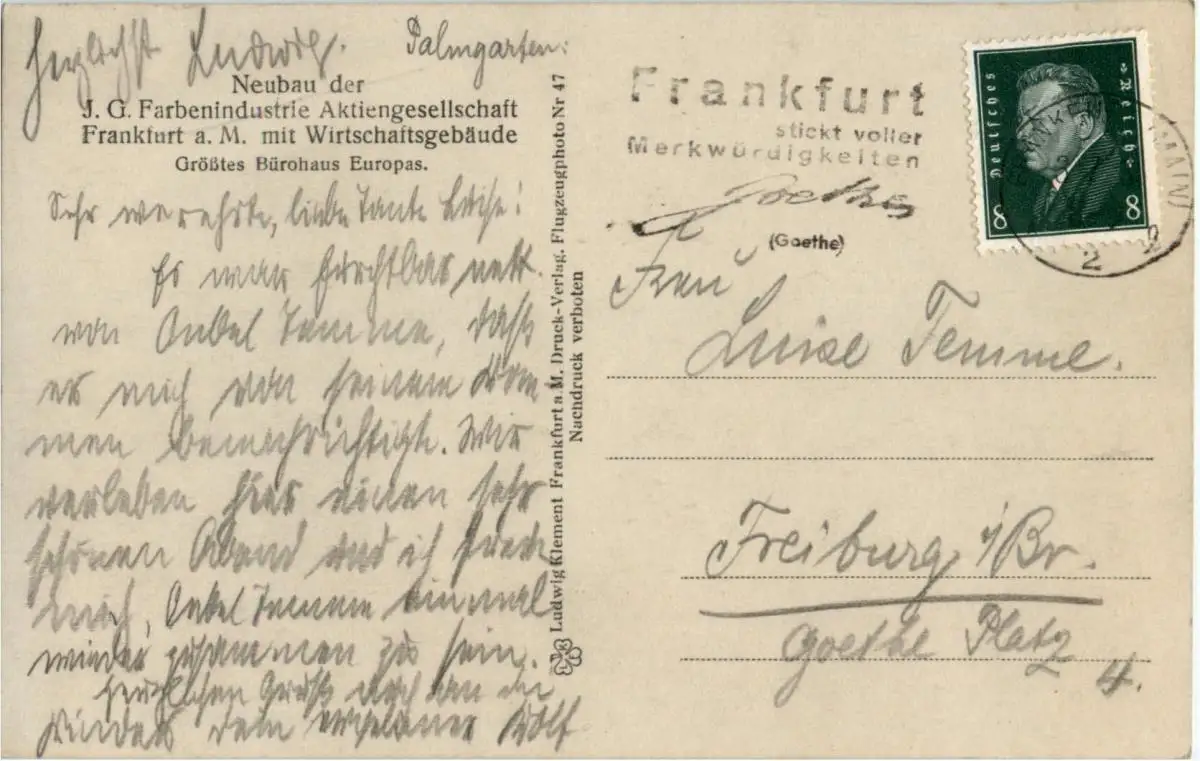 Herzlichst Ludwig. Palmgarten:
Neubau der
J. G. Farbenindustrie Aktiengesellschaft
Frankfurt a. M. mit Wirtschaftsgebäude
Größtes Bürohaus Europas.
Sehr verehrte, liebe Tante Luise!
Es war furchtbar nett
von Onkel Temme, dass
er mich von seinem Kom-
men benachrichtigte. Wir
verleben hier einen sehr
schönen Abend und ich freue
mich, Onkel Temme einmal
wieder zusammen zu sein.
Herzlichen Gruß auch an die
Kinder Dein ergebener Wolf
Ludwig Klement Frankfurt a. M. Druck-Verlag. Flugzeugphoto Nr 47
Nachdruck verboten
Frankfurt
stickt voller
Merkwürdigkeiten
Goethe
(Goethe)
Deutsches Reich
8 8
FRANKFURT (MAIN)
2
Frau
Luise Temme.
Freiburg i/Br.
Goethe Platz
4.